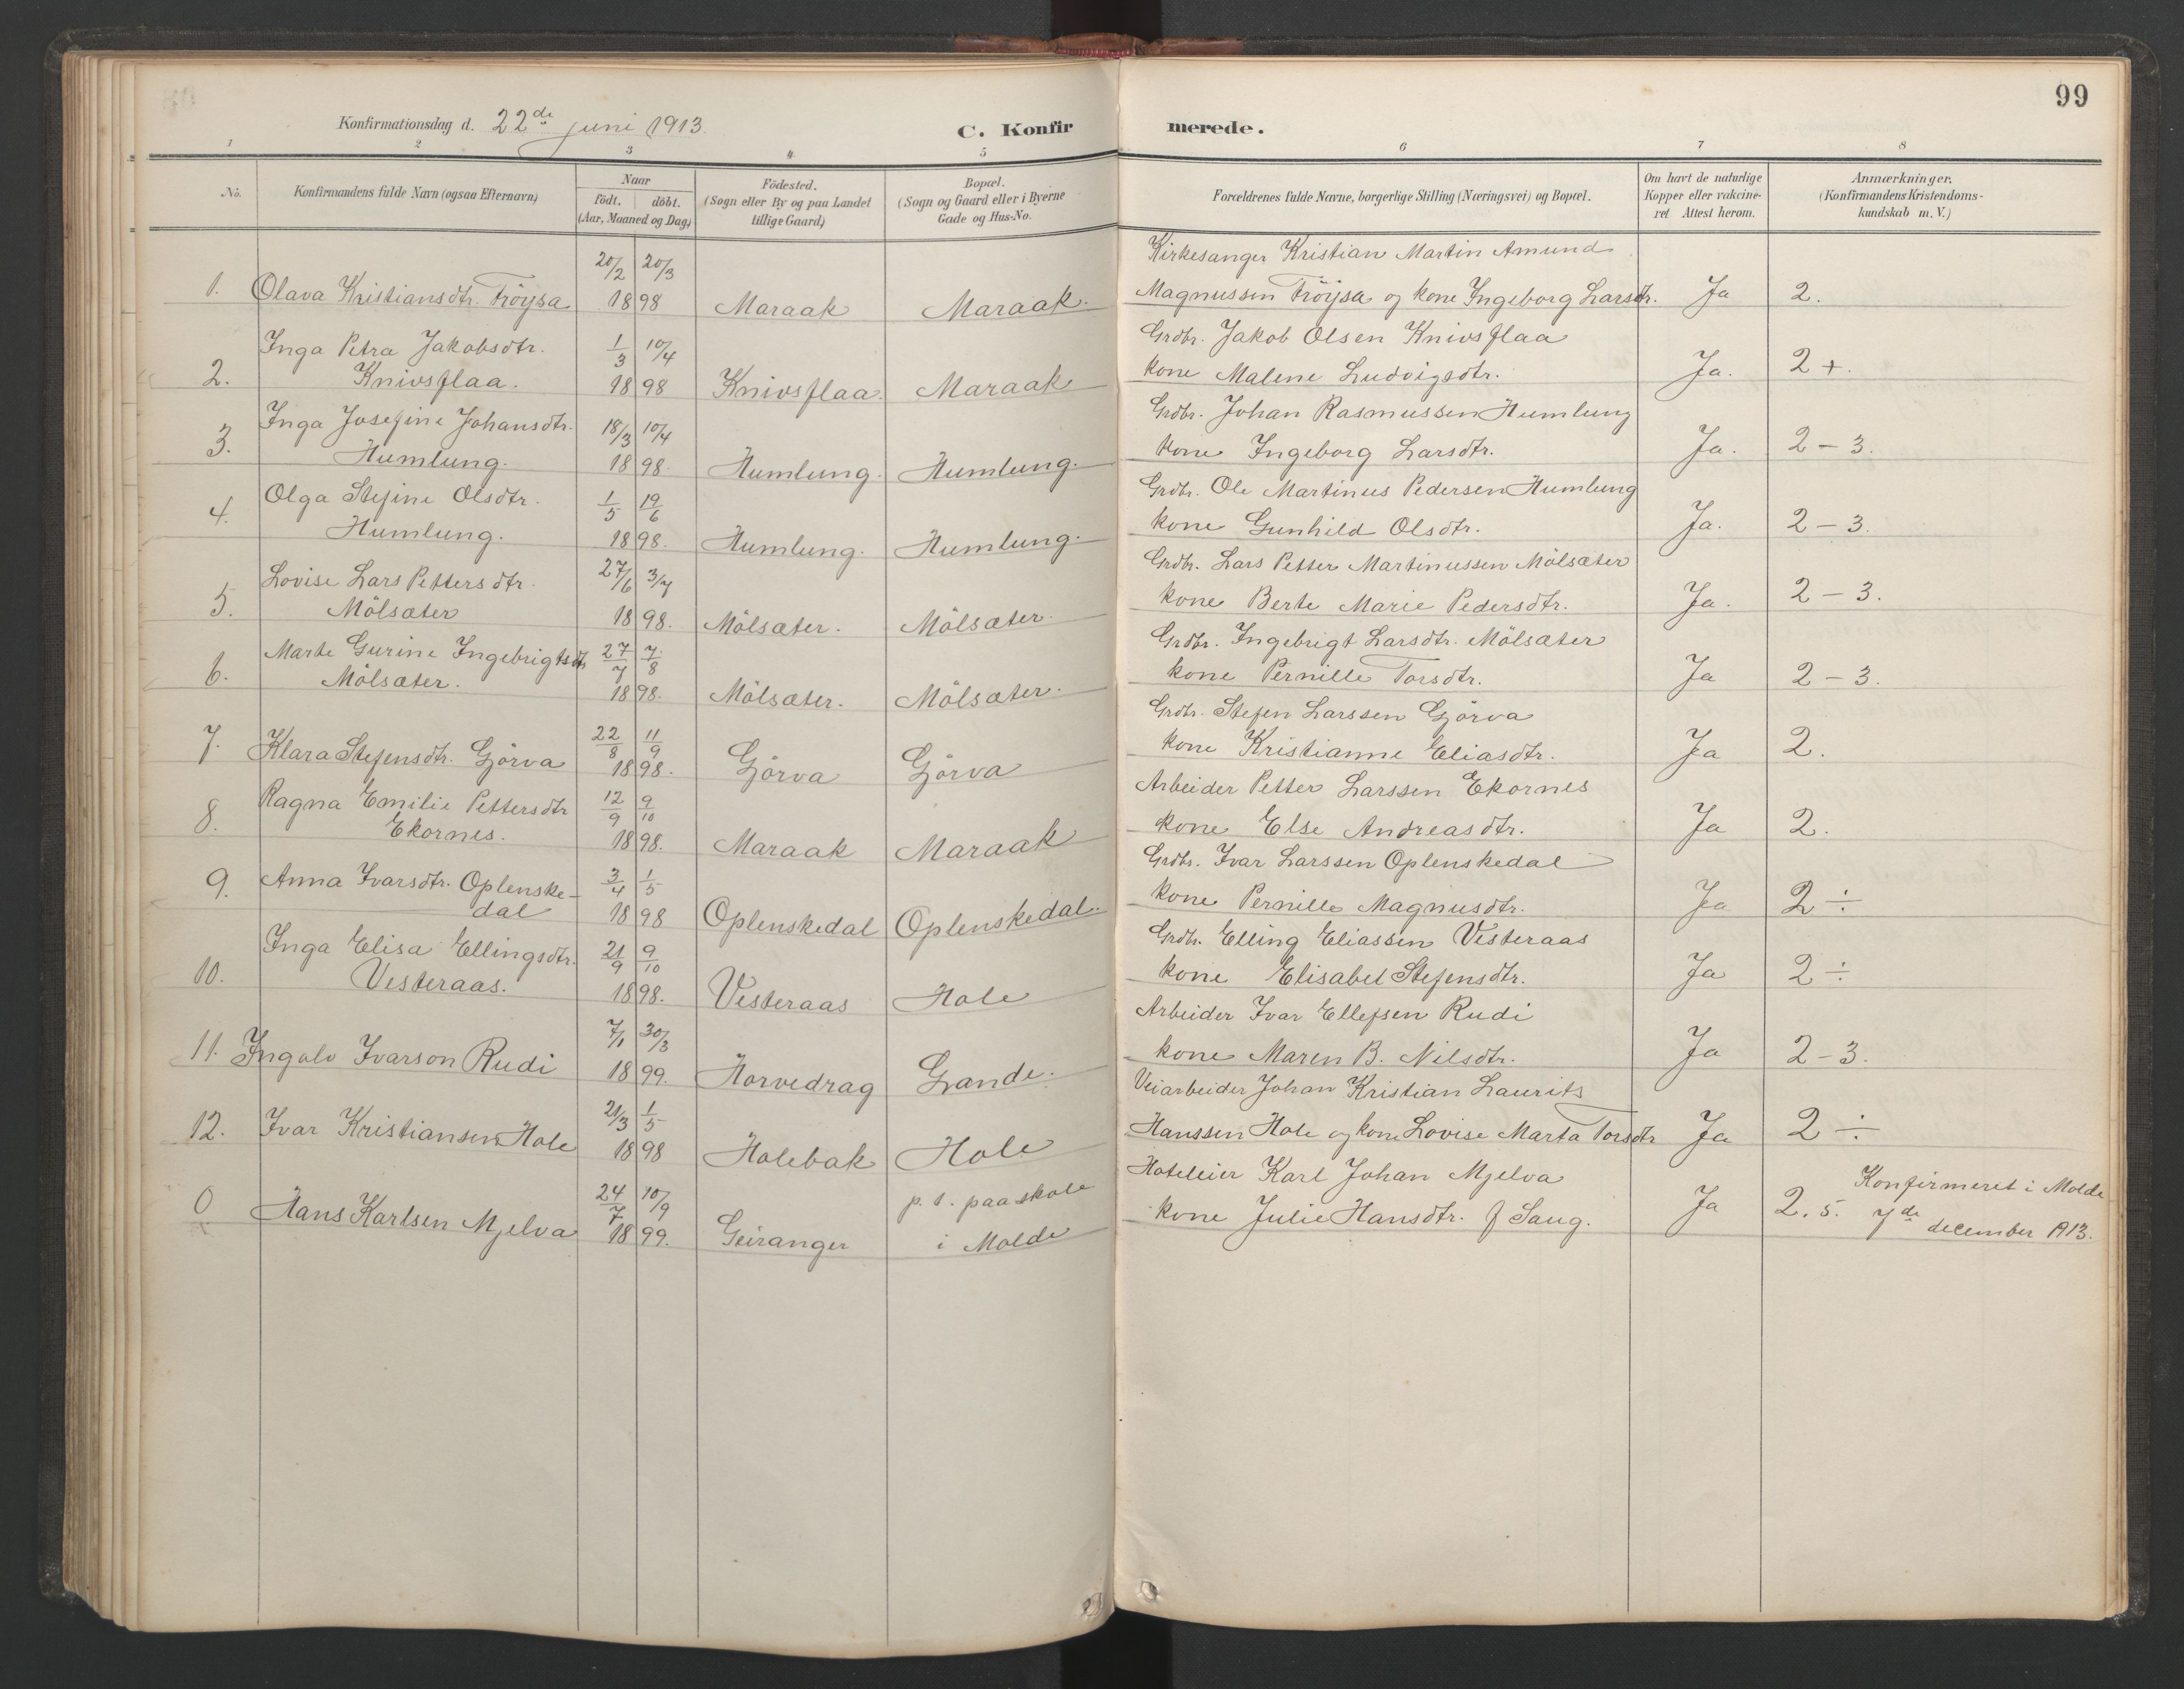 99
Konfirmationsdag d. 22de juni 1913.
C. Konfirmerede.
1 2 3 4 5 6 7 8
No.
Konfirmandens fulde Navn (ogsaa Efternavn)
Naar
födt. döbt.
(Aar, Maaned og Dag)
Födested.
(Sogn eller By og paa Landet
tillige Gaard)
Bopæl.
(Sogn og Gaard eller i Byerne
Gade og Hus-No.
Forældrenes fulde Navne, borgerlige Stilling (Næringsvei) og Bopæl.
Om havt de naturlige
Kopper eller vakcine-
ret Attest herom.
Anmærkninger.
(Konfirmandens Kristendoms-
kundskab m. V.)
20/2 20/3 Kirkesanger Kristian Martin Amund
1. Olava Kristiansdtr. Fröysa 1898 Maraak Maraak. Magnussen Fröysa og kone Ingeborg Larsdtr. Ja 2.
Inga Petra Jakobsdtr. 1/3 10/4 Grdbr. Jakob Olsen Knivsflaa
2. Knivsflaa. 1898 Knivsflaa. Maraak kone Malene Ludvigsdtr. Ja. 2+.
Inga Josefine Johansdtr. 18/3 10/4 Grdbr. Johan Rasmussen Humlung
3. Humlung. 1898. Humlung. Humlung. kone Ingeborg Larsdtr. Ja. 2-3.
Olga Stefine Olsdtr. 1/5 19/6 Grdbr. Ole Martinus Pedersen Humlung
4. Humlung. 1898. Humlung. Humlung. kone Gunhild Olsdtr. Ja. 2-3.
Lovise Lars Pettersdtr. 27/6 3/7 Grdbr. Lars Petter Martinussen Mölsæter
5. Mölsæter 1898. Mölsæter. Mölsæter. kone Berte Marie Pedersdtr. Ja. 2-3.
Marte Gurine Ingebrigtsdtr 27/7 7/8 Grdbr. Ingebrigt Larsdtr. Mölsæter
6. Mölsæter. 1898. Mölsæter. Mölsæter. kone Pernille Torsdtr. Ja 2-3.
22/8 11/9 Grdbr. Stefen Larssen Gjörva
7. Klara Stefensdtr. Gjörva 1898. Gjörva Gjörva kone Kristianne Eliasdtr. Ja 2.
Ragna Emilie Pettersdtr 12/9 9/10 Arbeider Petter Larssen Ekornes
8. Ekornes. 1898. Maraak Maraak kone Else Andreasdtr. Ja 2.
9. Anna Ivarsdtr. Oplenske- 3/4 1/5 Grdbr. Ivar Larssen Oplenskedal
dal 1898 Oplenskedal Oplenskedal. kone Pernille Magnusdtr. Ja 2÷
Inga Elisa Ellingsdtr. 21/9 9/10 Grdbr. Elling Eliassen Vesteraas
10. Vesteraas. 1898. Vesteraas Hole kone Elisabet Stefensdtr. Ja 2÷
7/1 30/3 Arbeider Ivar Ellefsen Rudi
11. Ingolv Ivarson Rudi 1899. Horvedrag Grande. kone Maren B. Nilsdtr. Ja 2-3.
21/3 1/5 Veiarbeider Johan Kristian Laurits
12. Ivar Kristiansen Hole 1898 Holebak Hole Hanssen Hole og kone Lovise Marta Torsdtr Ja 2÷
24/7 10/9 p. t. paa skole Hoteleier Karl Johan Mjelva Konfirmeret i Molde
0 Hans Karlsen Mjelva 1899. Geiranger i Molde kone Julie Hansdtr. f Saug. Ja 2.5. 7de december 1913.